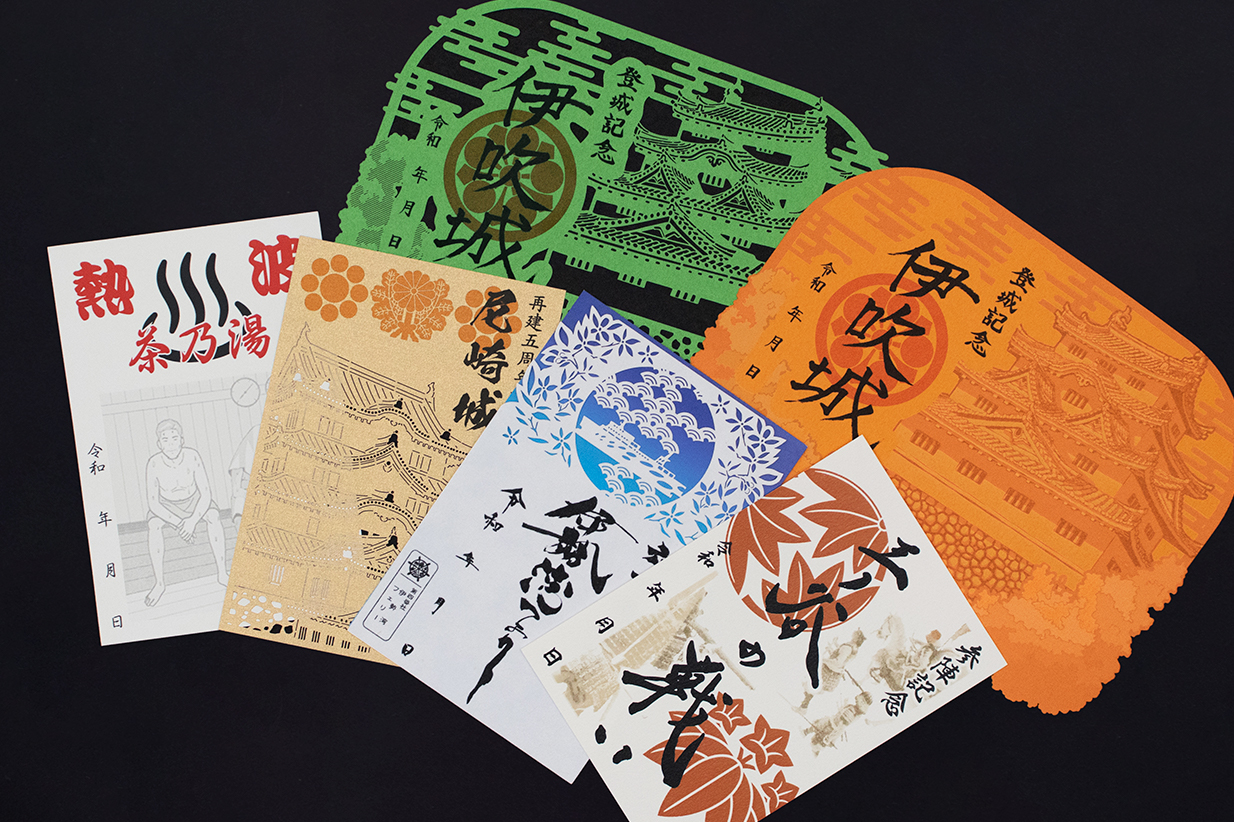 登城記念
伊吹城
令和 年 月 日
登城記念
伊吹城
令和 年 月 日
熱波
茶乃湯
令和 年 月 日
再建五周年
尼崎城
令和 年 月 日
伊勢湾
フェリー
参陣記念
の戦い
令和 年 月 日